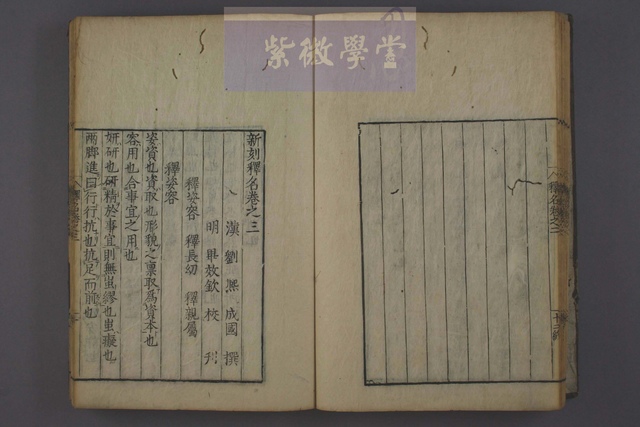 紫微學堂
新刻釋名卷之三
漢 劉熈 成國 撰
明 畢效欽 校刋
釋姿容 釋長幼 釋親屬
釋姿容
姿資也資取也形貌之禀取爲資本也
容用也合事宜之用也
妍研也研精於事宜則無蚩繆也蚩癡也
兩脚進曰行行抗也抗足而前也